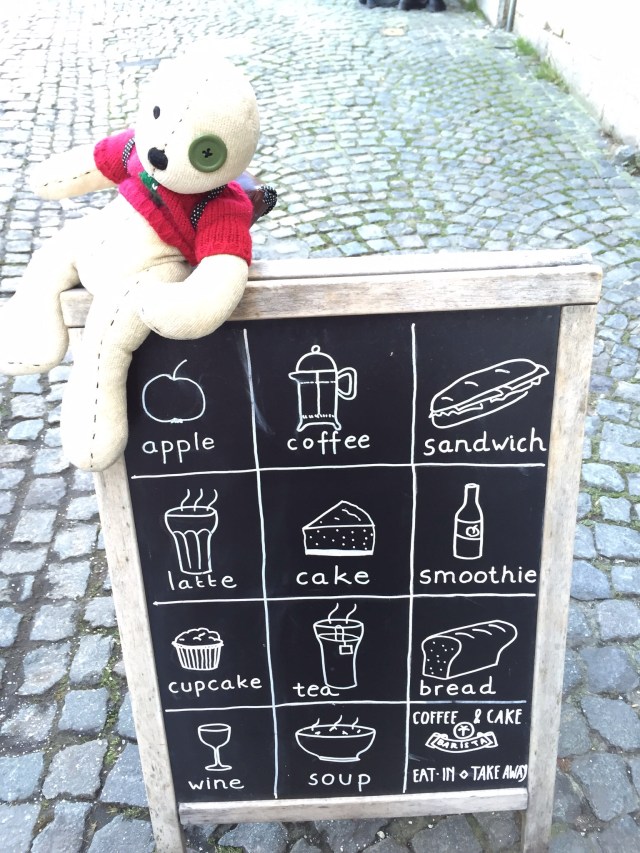 apple
coffee
sandwich
latte
cake
smoothie
cupcake
tea
bread
wine
soup
COFFEE & CAKE
BARISTA
EAT·IN ⋄ TAKE AWAY